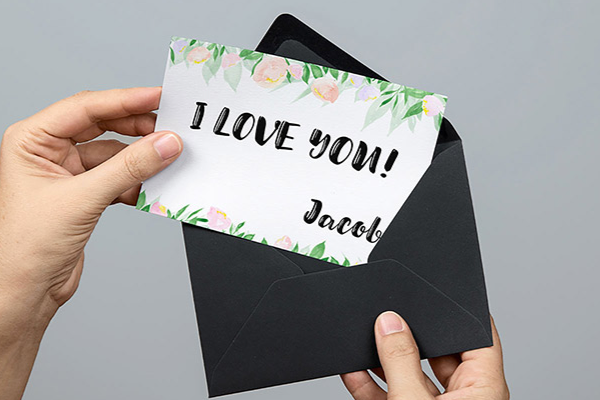 I LOVE YOU!
Jacob